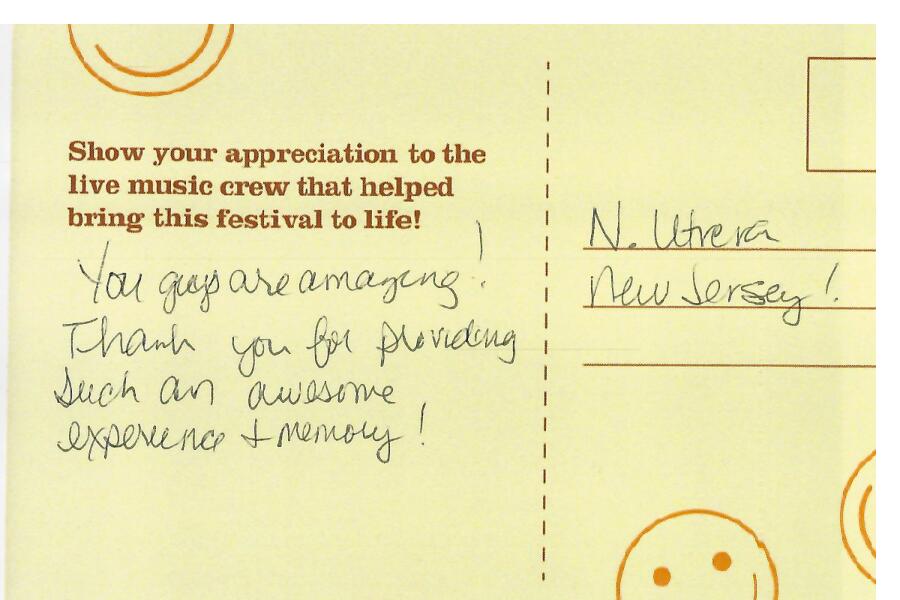 Show your appreciation to the
live music crew that helped
bring this festival to life!
You guys are amazing!
Thank you for providing
such an awesome
experience + memory!
N. Utrera
New Jersey!